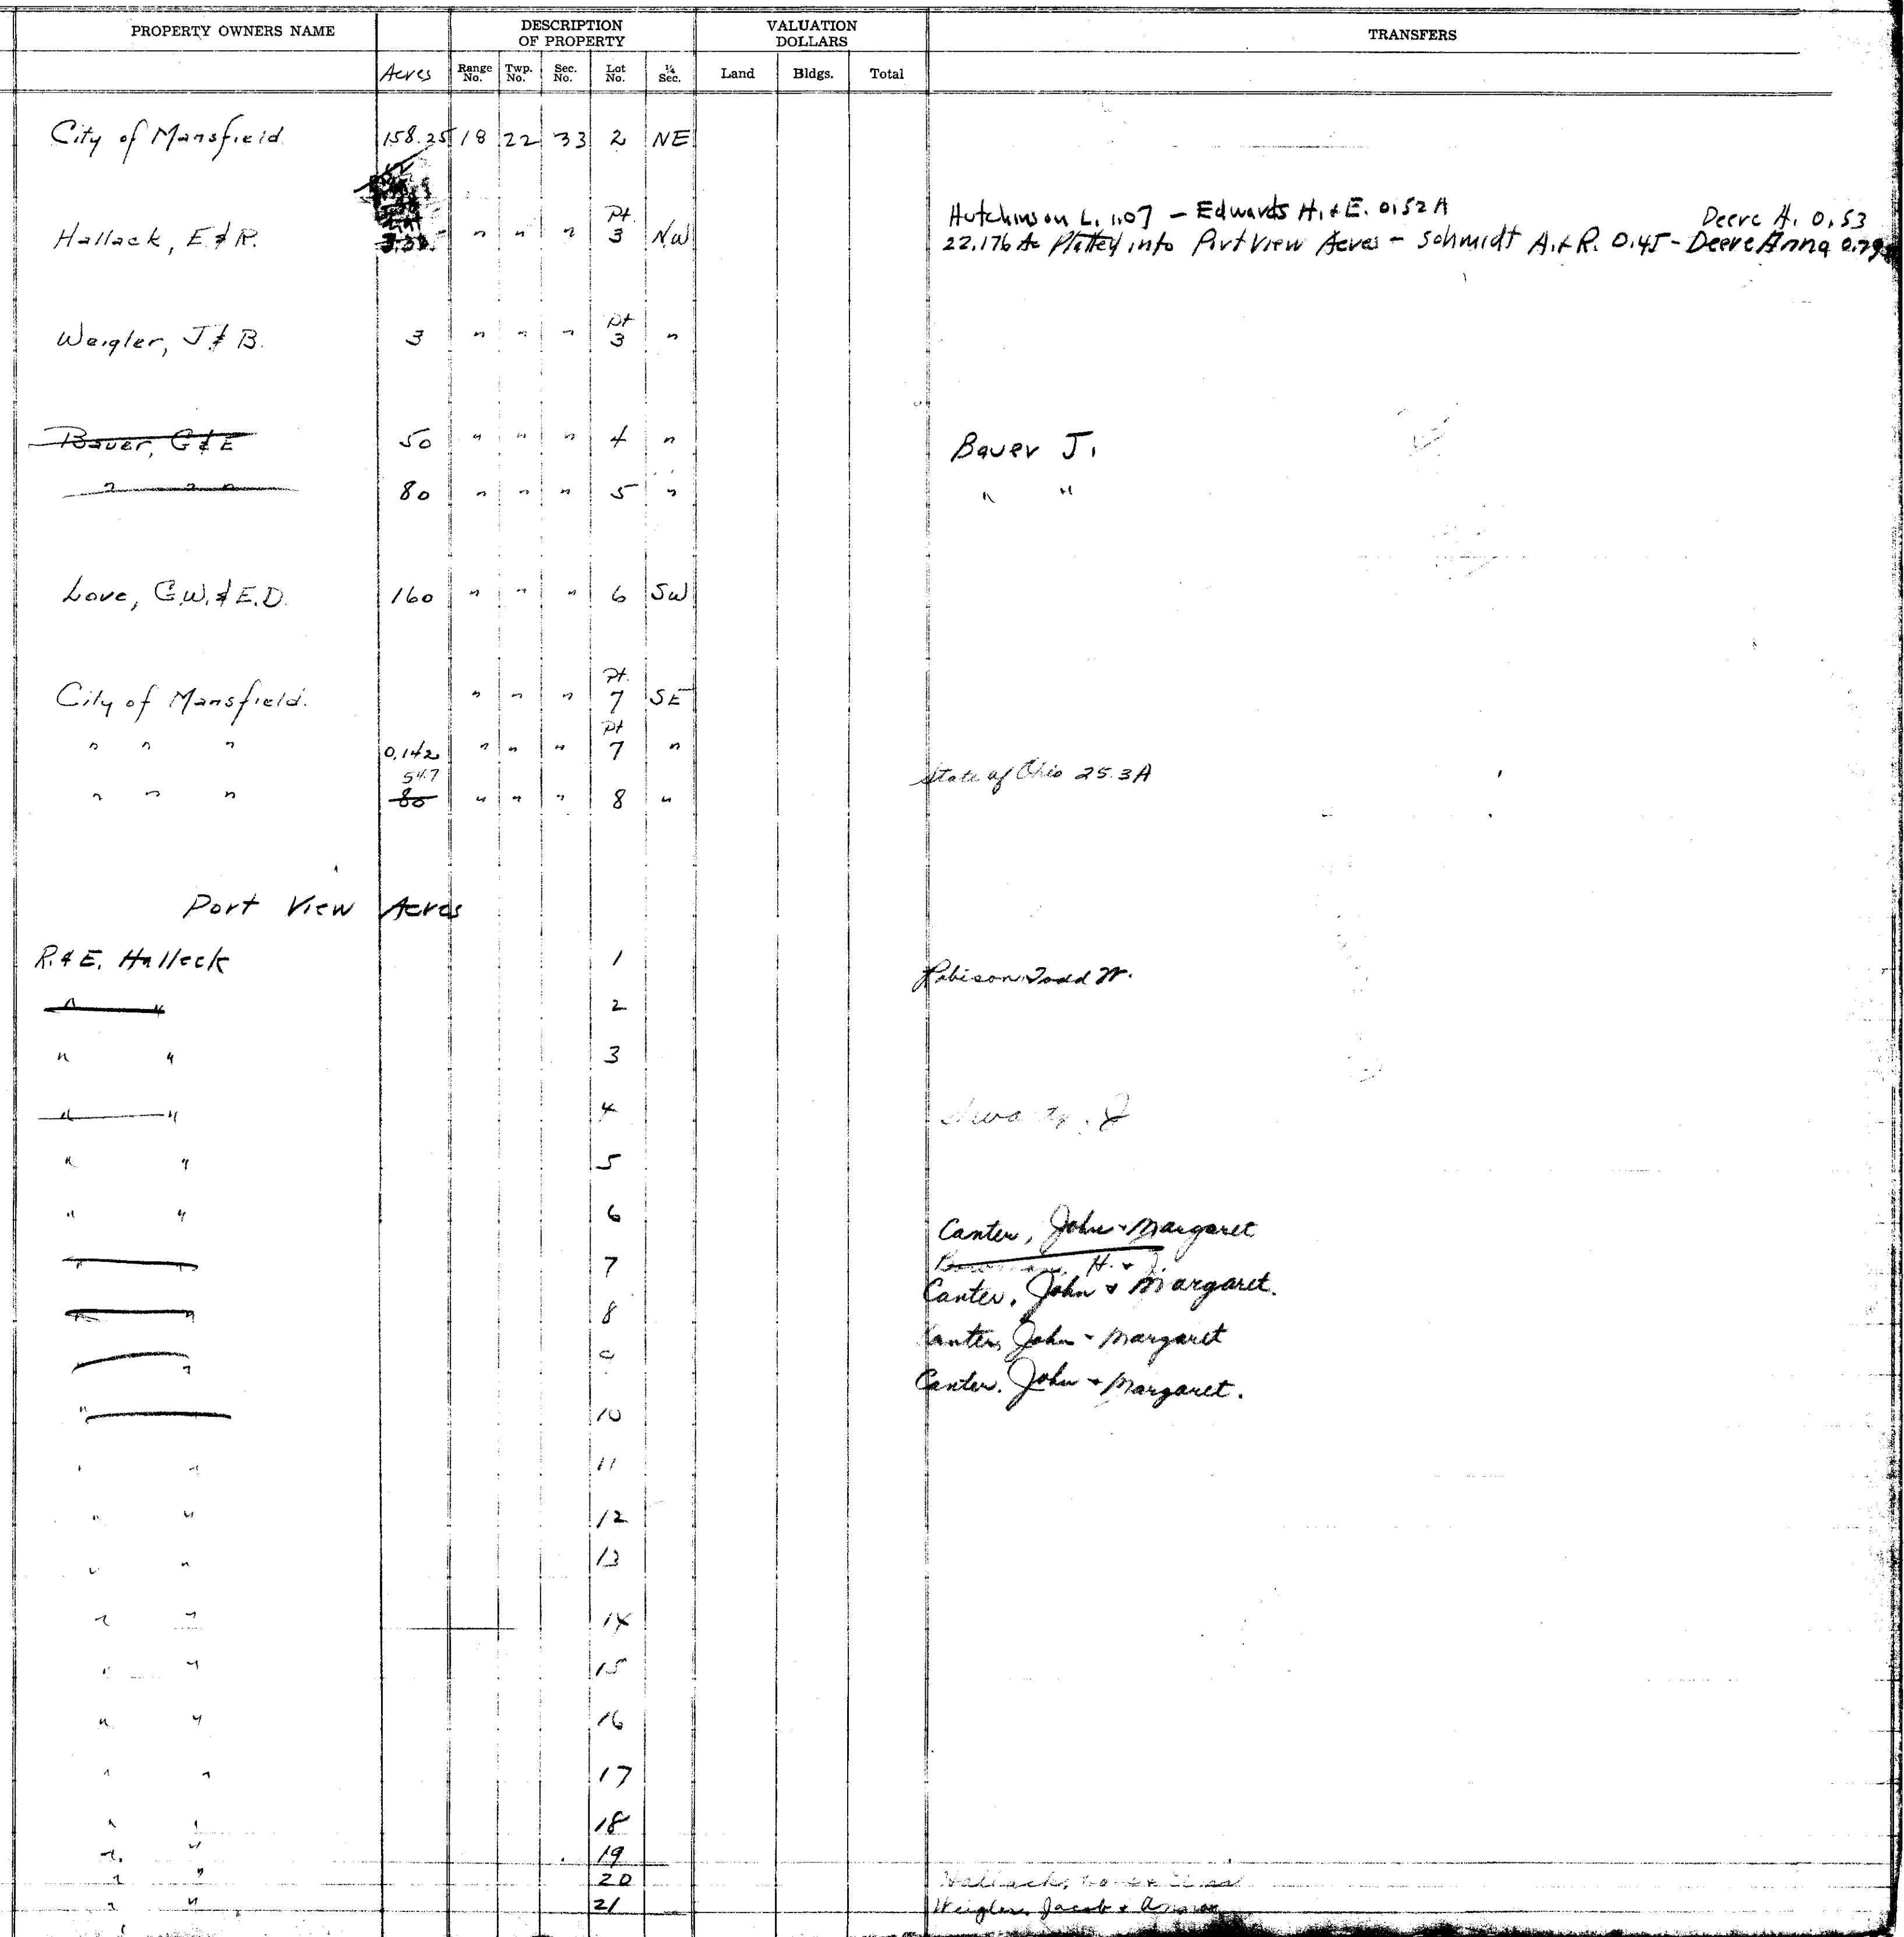 PROPERTY OWNERS NAME DESCRIPTION OF PROPERTY VALUATION DOLLARS TRANSFERS
Acres Range No. Twp. No. Sec. No. Lot No. ¼ Sec. Land Bldgs. Total
City of Mansfield 158.25 18 22 33 2 NE
Hutchinson L. 1.07 - Edwards H. & E. 0.52 A Deere A. 0.53
Hallack, E & R. " " " Pt. 3 NW 22.176 Ac Platted into Port View Acres - Schmidt A. & R. 0.45 - Deere Anna
Weigler, J & B. 3 " " " Pt 3 "
Bauer, G & E 50 " " " 4 " Bauer J.
" " " 80 " " " 5 " " "
Love, G.W. & E.D. 160 " " " 6 SW
City of Mansfield. " " " Pt. 7 SE
" " " 0.142 " " " Pt 7 "
54.7 State of Ohio 25.3 A
" " " 80 " " " 8 "
Port View Acres
R. & E. Halleck 1
" " 2 Robison Todd W.
" " 3
" " 4
" " 5
" " 6
Canter, John & Margaret
" " 7 H. &
Canter, John & Margaret.
" " 8
Canter, John & Margaret
" " 9
Canter. John & Margaret.
" " 10
" " 11
" " 12
" " 13
" " 14
" " 15
" " 16
" " 17
" " 18
" " 19
" " 20 Hallack,
" " 21 Weigler, Jacob &